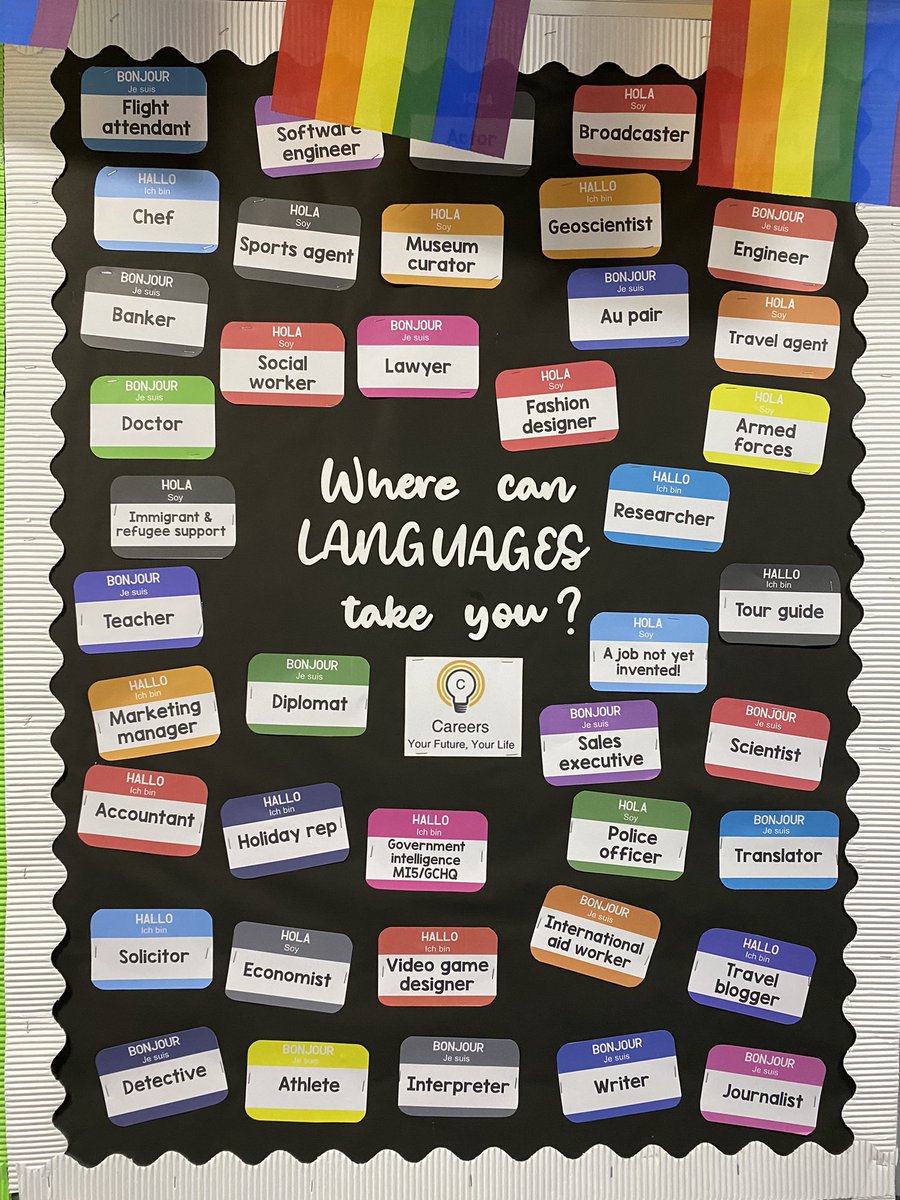 BONJOUR
Je suis
Flight
attendant
Software
engineer
HOLA
Soy
Actor
HOLA
Soy
Broadcaster
HALLO
Ich bin
Chef
HOLA
Soy
Sports agent
HOLA
Soy
Museum
curator
HALLO
Ich bin
Geoscientist
BONJOUR
Je suis
Engineer
BONJOUR
Je suis
Banker
BONJOUR
Je suis
Au pair
HOLA
Soy
Travel agent
HOLA
Soy
Social
worker
BONJOUR
Je suis
Lawyer
HOLA
Soy
Fashion
designer
BONJOUR
Je suis
Doctor
HOLA
Soy
Armed
forces
HOLA
Soy
Immigrant &
refugee support
Where can
LANGUAGES
take you?
HALLO
Ich bin
Researcher
BONJOUR
Je suis
Teacher
HALLO
Ich bin
Tour guide
HOLA
Soy
A job not yet
invented!
HALLO
Ich bin
Marketing
manager
BONJOUR
Je suis
Diplomat
C
Careers
Your Future, Your Life
BONJOUR
Je suis
Sales
executive
BONJOUR
Je suis
Scientist
HALLO
Ich bin
Accountant
HALLO
Ich bin
Holiday rep
HALLO
Ich bin
Government
intelligence
MI5/GCHQ
HOLA
Soy
Police
officer
BONJOUR
Je suis
Translator
HALLO
Ich bin
Solicitor
HOLA
Soy
Economist
HALLO
Ich bin
Video game
designer
BONJOUR
Je suis
International
aid worker
HALLO
Ich bin
Travel
blogger
BONJOUR
Je suis
Detective
BONJOUR
Je suis
Athlete
BONJOUR
Je suis
Interpreter
BONJOUR
Je suis
Writer
BONJOUR
Je suis
Journalist